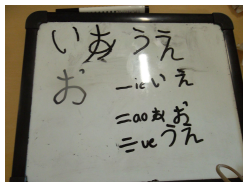 い あ う え
お
一 ie い え
二 ao あ お
三 ue う え